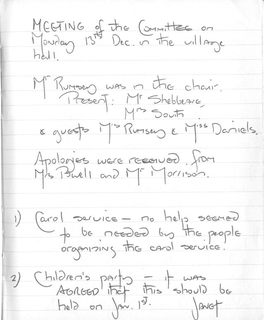 MEETING of the Committee on
Monday 13th Dec. in the village
hall.
Mr Rumsey was in the chair.
Present: Mr Shebbeare,
Mrs South
& guests Mrs Rumsey & Miss Daniels.
Apologies were received from
Mrs Powell and Mr Morrison.
1) Carol service – no help seemed
to be needed by the people
organising the carol service.
2) Children's party – it was
AGREED that this should be
held on Jan. 1st. Janet